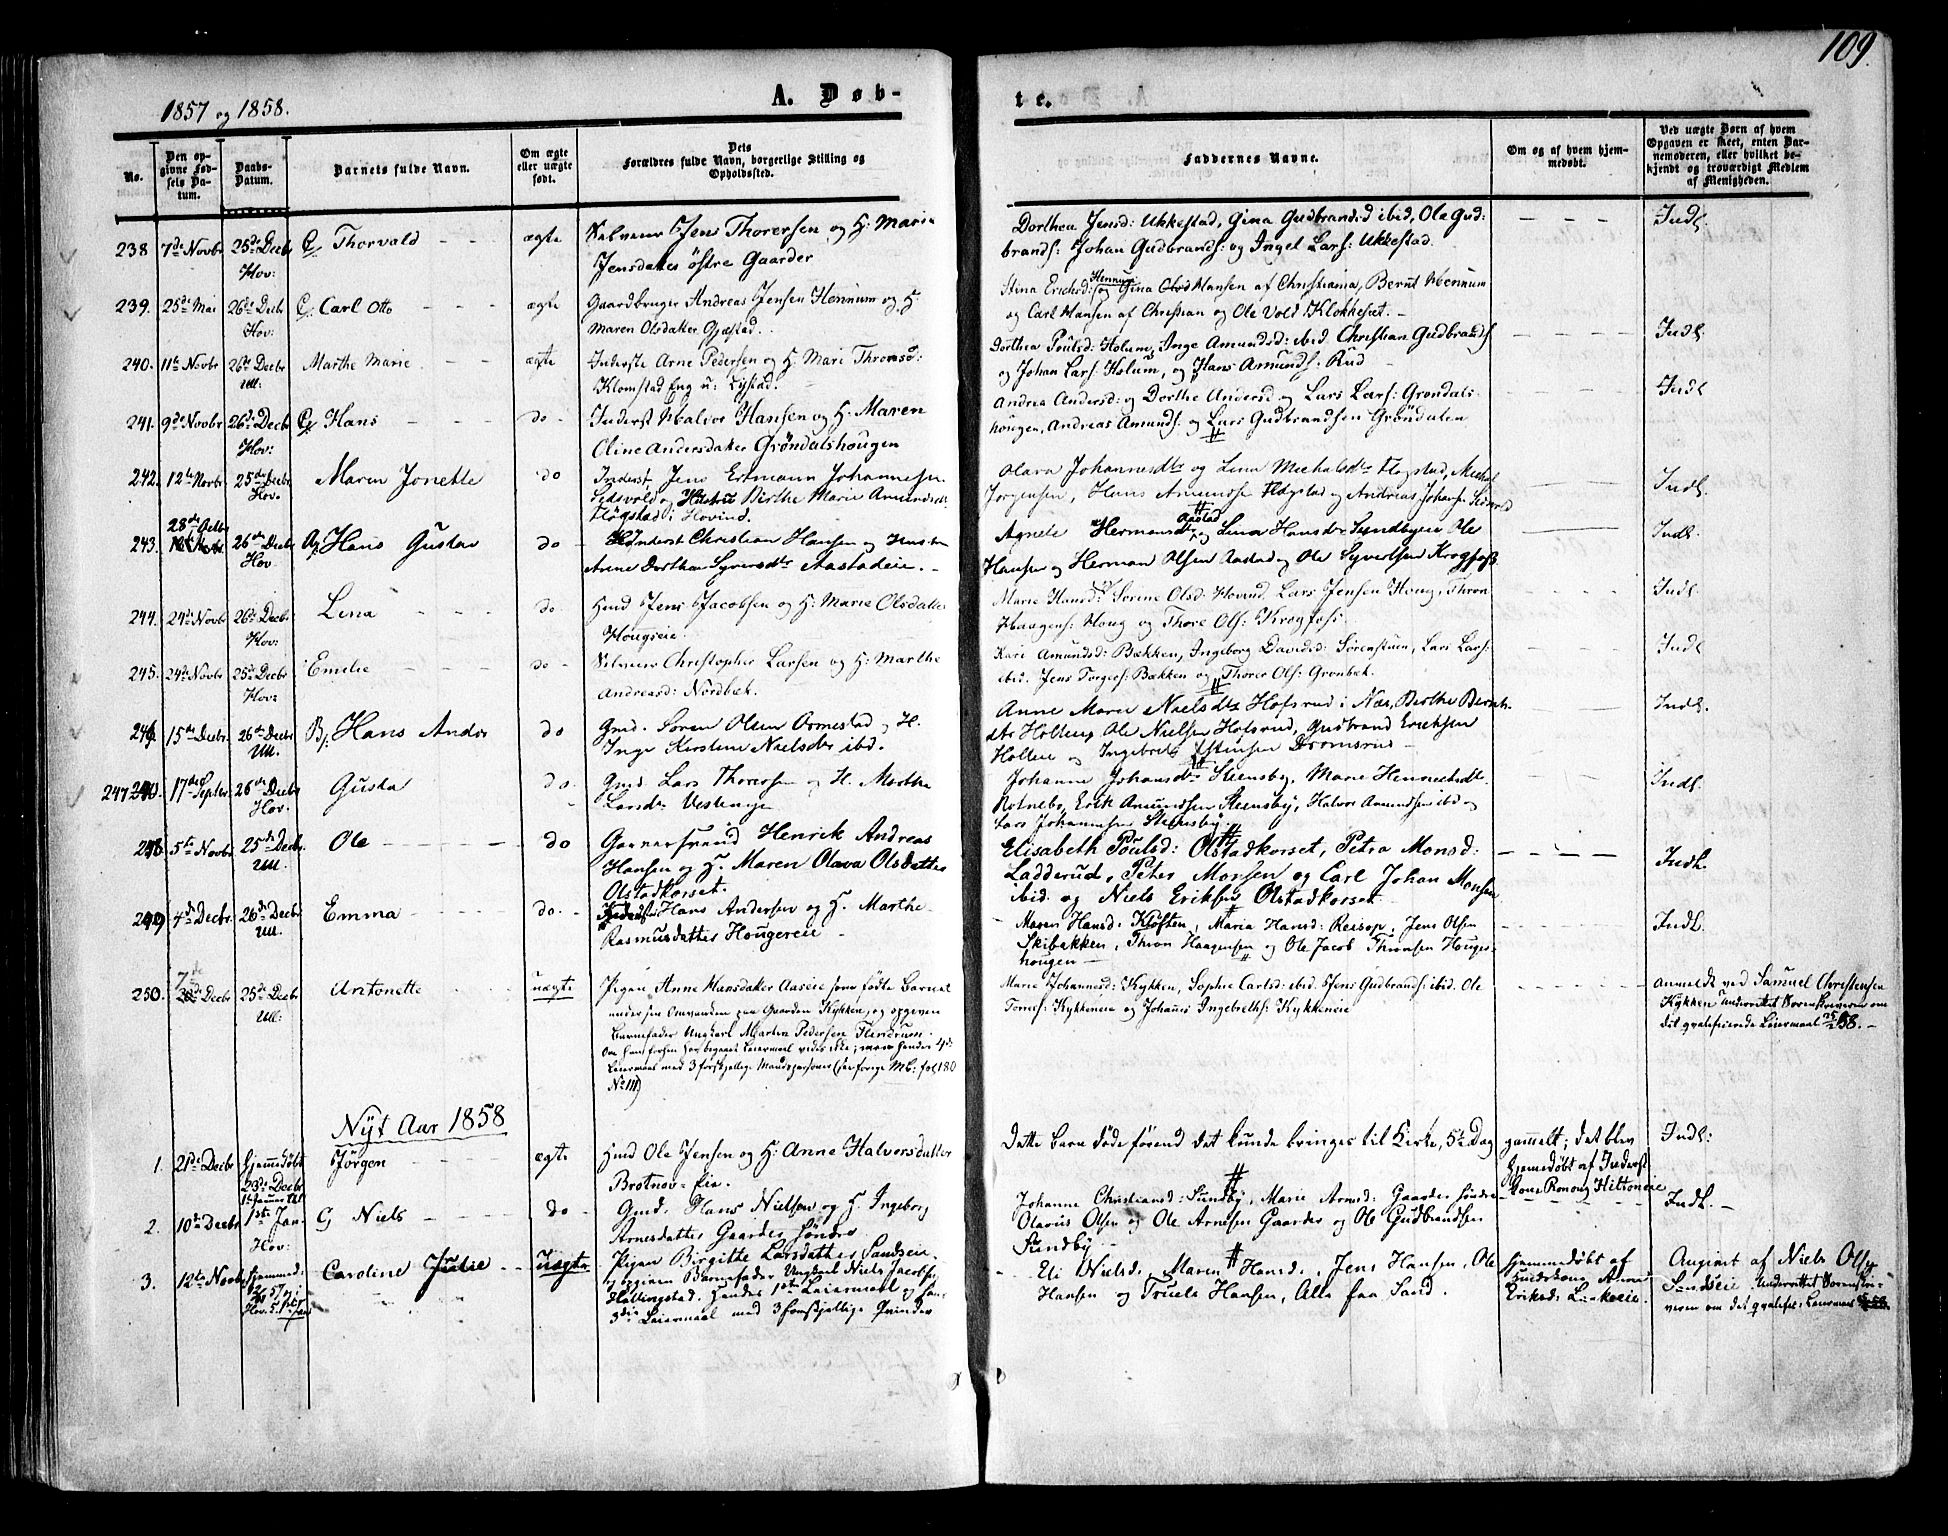 109.
1857 og 1858.
A. Døb-
te.
No.
Den op-
givne Fød-
sels Da-
tum.
Daabs-
Datum.
Barnets fulde Navn.
Om ægte
eller uægte
født.
Dets
Forældres fulde Navn, borgerlige Stilling og
Opholdssted.
Faddernes Navne.
Om og af hvem hjem-
medøbt.
Ved uægte Børn af hvem
Opgaven er skeet, enten Bar-
nemoderen, eller hvilket be-
kjendt og troværdigt Medlem
af Menigheden.
238 7de Novbr 25de Decbr Thorvald ægte Selveier Jens Thorersen og H: Maria
Hov:
Jensdatter østre Gaarder
Dorthea Jensd: Ukkestad, Gina Gudbrandsd ibid, Ole Gud:
brands: Johan Gudbrands: og Ingel Lars: Ukkestad.
Indl.
239. 25de Mai 26de Decbr Carl Otto ægte Gaardbruger Andreas Jensen Hennum og H:
Hov:
Maren Olsdatter Gjestad.
Stina Ericksd: Hennum og Gina Hansen af Christiania, Bernt Hennum
og Carl Hansen af Christian og Ole Vold Klokkesæt.
Indl.
240. 11te Novbr 26de Decbr Marthe Marie ægte Inderste Arne Pedersen og H: Mari Thronsd:
Ull:
Klomstad Eng u: Lystad.
Dorthea Poulsd: Holum, Inge Amundsd: ibid. Christian Gudbrands:
og Johan Lars: Holum, og Hans Amunds: Rud
Indl
241. 9de Novbr 26de Decbr Hans do Inderst Halvor Hansen og H. Maren
Hov:
Oline Andersdatter Grøndalshougen
Andrea Andersd: og Dorthe Andersd og Lars Lars: Grøndals-
hougen, Andreas Amunds: og Lars Gudbrandsen Grøndalen
Indl
242. 12te Novbr 25de Decbr Maren Jonette do Inderst Jens Ertmann Johannesen
Hov.
Eidsvold og Hustru Birthe Marie Amundsdtr
Høgstad i Hovind.
Olava Johannesdtr og Lina Michalsdtr Høgstad, Michal
Jørgensen, Hans Amundsen Høgstad og Andreas Johans: Eidsvold
Indl.
243. 28de Octbr 26de Decbr Hans Gustav do Inderst Christian Hansen og Hustru
Hov.
Anne Dorthea Syversdtr Aastadeie.
Agnete Hermansdtr Aastad og Lina Hansdtr Sundbyeie Ole
Hansen og Herman Olsen Aastad og Ole Syvertsen Krogfoss
Indl.
244. 24de Novbr 26de Decbr Lina do Hmd Jens Jacobsen og H: Marie Olsdatter
Hov:
Hougseie.
Marie Hansd: Sørine Olsd: Hovind, Lars Jensen Houg, Thron
Haagens: Houg og Thore Ols: Krogfoss.
Indl.
245. 24de Novbr 25de Decbr Emilie do Selveier Christopher Larsen og H: Marthe
Hov:
Andreasd: Nordbek.
Kari Amundsd: Bækken, Ingeborg Davidsd: Sørenstuen, Lars Lars:
ibid. Jens Torgers: Bækken og Thorer Ols: Grønbek.
Indl
246. 15de Decbr 26de Decbr Hans Anders do Gmd. Søren Olsen Ormestad og H.
Ull.
Inge Kirstine Nielsdtr ibd.
Anne Marie Nielsdtr Hofsrud i Næs, Berthe Bernts-
dtr Holterup Ole Nielsen Hofsrud, Gudbrand Eriksen
Holter og Ingebret Estensen Dromsrud
Indl.
247 17de Septbr. 26de Decbr Gusta do. Gmd. Lars Thorersen og H. Marthe
Hov.
Larsdtr Vestenge
Johanne Johansdtr Steensby, Marie Henriksdtr
Rotnebo, Erik Amundsen Steensby, Halvor Amundsen ibd og
Lars Johannesen Steensby.
Indl.
248 5te Novbr 25de Decbr Ole do Garversvend Henrik Andreas
Ull.
Hansen og H. Maren Olava Olsdatter
Olstadkorset.
Elisabeth Poulsd: Olstadkorset, Petra Monsd:
Ladderud, Peter Monsen og Carl Johan Monsen
ibid. og Niels Eriksen Olstadkorset
Indl.
249 4de Decbr. 26de Decbr Emma do. Inderst Hans Andersen og H. Marthe
Ull.
Rasmusdatter Hougereie
Maren Hansd: Kløften, Maria Hansd: Reisop, Jens Olsen
Skibakken, Thron Haagensen og Ole Jacob Thronsen Houges-
hougen
Indl.
250. 7de Decbr 25de Decbr Antonette uægte Pigen Anne Hansdatter Aaseie som fødte Barnet
Ull:
under sin Omvanken paa Gaarden Kykken, og opgiven
Barnefader Ungkarl Martin Pedersen Flendrum.
Om han forhen har begaaet Leiermaal vides ikke; men hendes 4de
Leiermaal med 3 forskjellige Mandspersoner (see forrige MB: fol 180
No 111)
Marie Johannesd: Kykken, Sophie Carlsd: ibid: Jens Gudbrands: ibid. Ole
Tomes: Kykkeneie og Johans Ingebreths: Kykkeneie
anmeldt ved Samuel Christensen
Kykken Underrettet Sorenskriveren om
det qvalificerede Leiermaal 25/2 58.
Nÿt Aar 1858
1. 21de Decbr Hjemmedøbt
23de Decbr
Jørgen ægte Hmd Ole Jensen og H: Anne Halvorsdatter
Brotnov-Eie.
Dette barn døde førend det kunde bringes til Kirke, 5½ Dag gammelt; det blev
hjemedøbt af Inderst
Indl:
2. 10de Decbr 1ste Jan: Niels do Gmd. Hans Nielsen og H. Ingeborg
Hov:
Arnesdatter Gaarder Søndre
Johanne Christiansd: Sundby, Marie Arnesd: Gaarder søndre
Olavus Olsen og Ole Arnesen Gaarder og Ole Gudbrandsen
Sundby
Indl.
3. 12te Novbr Hjemmed: Caroline Julie Uægte Pigen Birgitte Larsdatter Sandseie
og opgiven Barnefader Ungkarl Niels Jacobsen
Hallingstad. Hendes 1ste Leiermaal og hans
3die Leiermaal med 3 forskjellige Qvinder
Eli Nielsd:, Maren Hansd:, Jens Hansen, Ole
Hansen og Truels Hansen, Alle fra Sand.
Hjemmedøbt af
Eriksd: Linkeie.
Angivet af Niels Olsen
Sandseie. Underrettet Sorenskri-
veren om det qvalific: Leiermaal